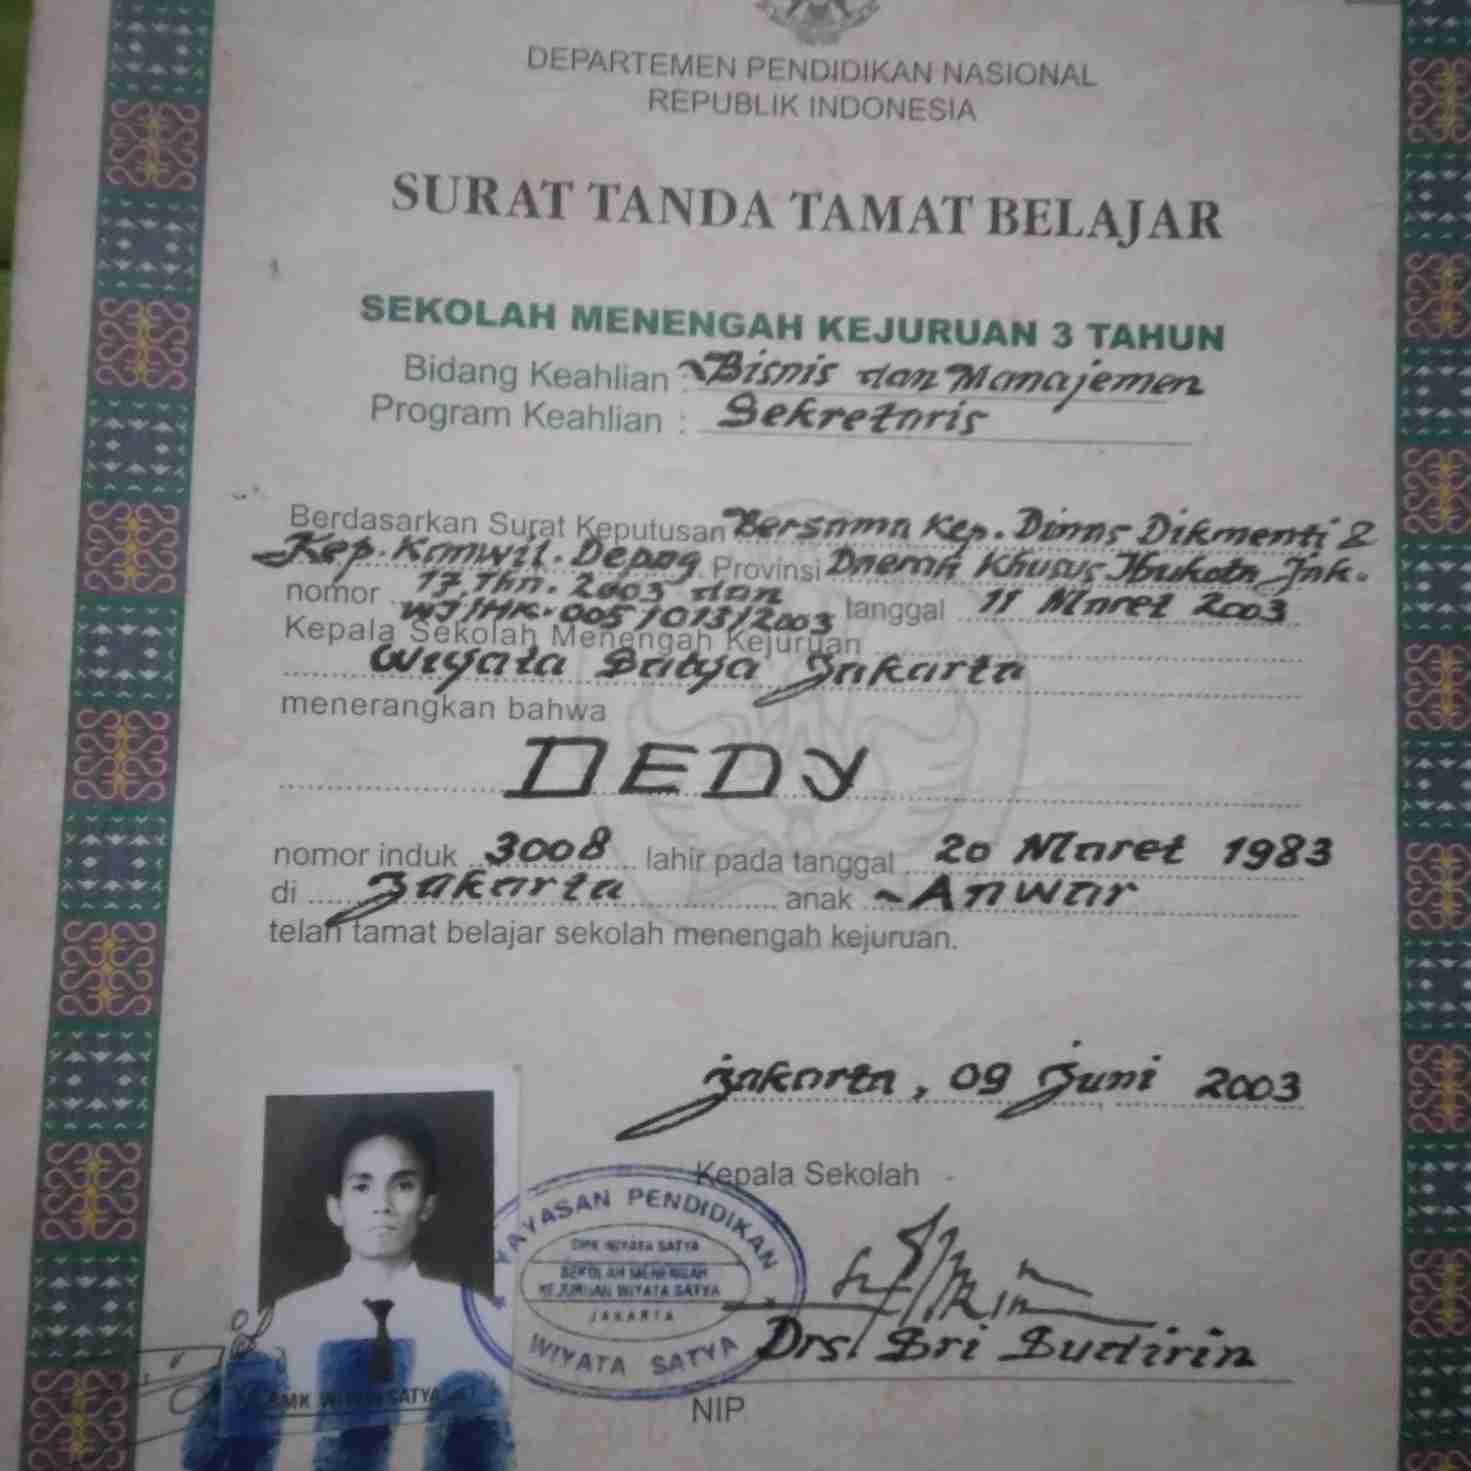 DEPARTEMEN PENDIDIKAN NASIONAL
REPUBLIK INDONESIA
SURAT TANDA TAMAT BELAJAR
SEKOLAH MENENGAH KEJURUAN 3 TAHUN
Bidang Keahlian : Bisnis dan Manajemen
Program Keahlian : Sekretaris
Berdasarkan Surat Keputusan Bersama Kep. Dinas Dikmenti &
Kep. Kanwil. Depag Provinsi Daerah Khusus Ibukota Jak.
nomor 17.Thn. 2003 dan
WJ/HK.005/013/2003 tanggal 11 Maret 2003
Kepala Sekolah Menengah Kejuruan
Wiyata Satya Jakarta
menerangkan bahwa
DEDY
nomor induk 3008 lahir pada tanggal 20 Maret 1983
di Jakarta anak Anwar
telah tamat belajar sekolah menengah kejuruan.
Jakarta, 09 Juni 2003
Kepala Sekolah
YAYASAN PENDIDIKAN
SMK WIYATA SATYA
SEKOLAH MENENGAH
KEJURUAN WIYATA SATYA
JAKARTA
WIYATA SATYA
Drs. Sri Sudirin
SMK WIYATA SATYA
NIP